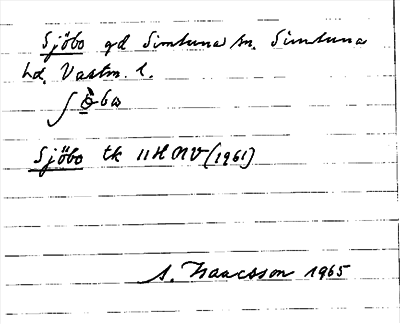 Sjöbo gd Simtuna sn. Simtuna
hd. Vastm. l.
Sjöbo tk 11H NV (1961)
A. Isaacsson 1965